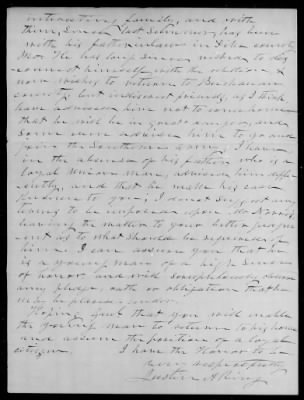 interesting family, and with
them, since last Summer, has been
with his father in law in
Mo. He has long since wished to dis-
connect himself with the rebellion &
now wishes to return to Buchanan
county, but indiscreet friends, as I think
have admonished him not to come home
that he will be in great danger, and
some even advise him to go and
join the Southern army. I have
in the absence of his father who is a
loyal Union man, advised him diffe-
rently, and that he make his case
known to you; I do not suggest any
terms to be imposed upon Mr
leaving the matter to your better judgm-
ent as to what should be required of
him. I can assure you that he
is a young man of a high sense
of honor and will scrupulously observe
any pledge, oath or obligation that he
may be placed under.
Hoping Gen that you will enable
the young man to return to his home
and assume the position of a loyal
citizen. I have the Honor to be
very respectfully